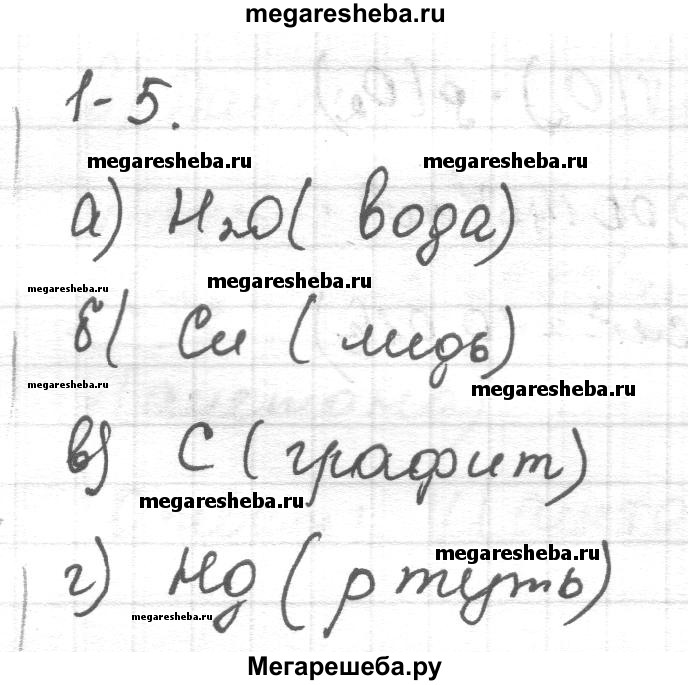 megaresheba.ru
1-5.
megaresheba.ru megaresheba.ru
а) H₂O ( вода)
megaresheba.ru megaresheba.ru
б) Cu ( медь)
megaresheba.ru megaresheba.ru
в) C ( графит)
megaresheba.ru
megaresheba.ru
г) Hg ( ртуть)
megaresheba.ru
Мегарешеба.ру